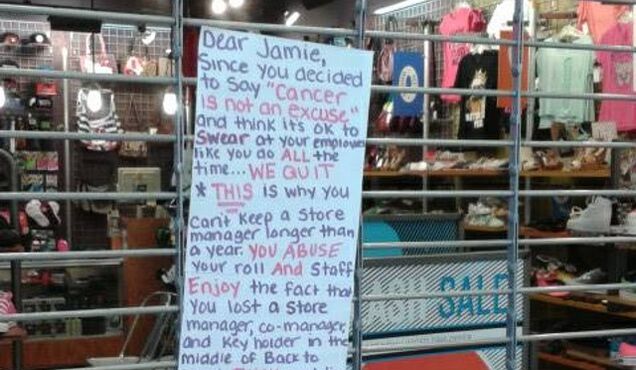 Dear Jamie,
Since you decided
to say "Cancer
is not an excuse"
and think it's ok to
Swear at your employees
like you do ALL the
time... WE QUIT
* THIS is why you
can't keep a store
manager longer than
a year. YOU ABUSE
your roll And staff
Enjoy the fact that
you lost a store
manager, co-manager,
and Key holder in the
middle of Back to
SALE